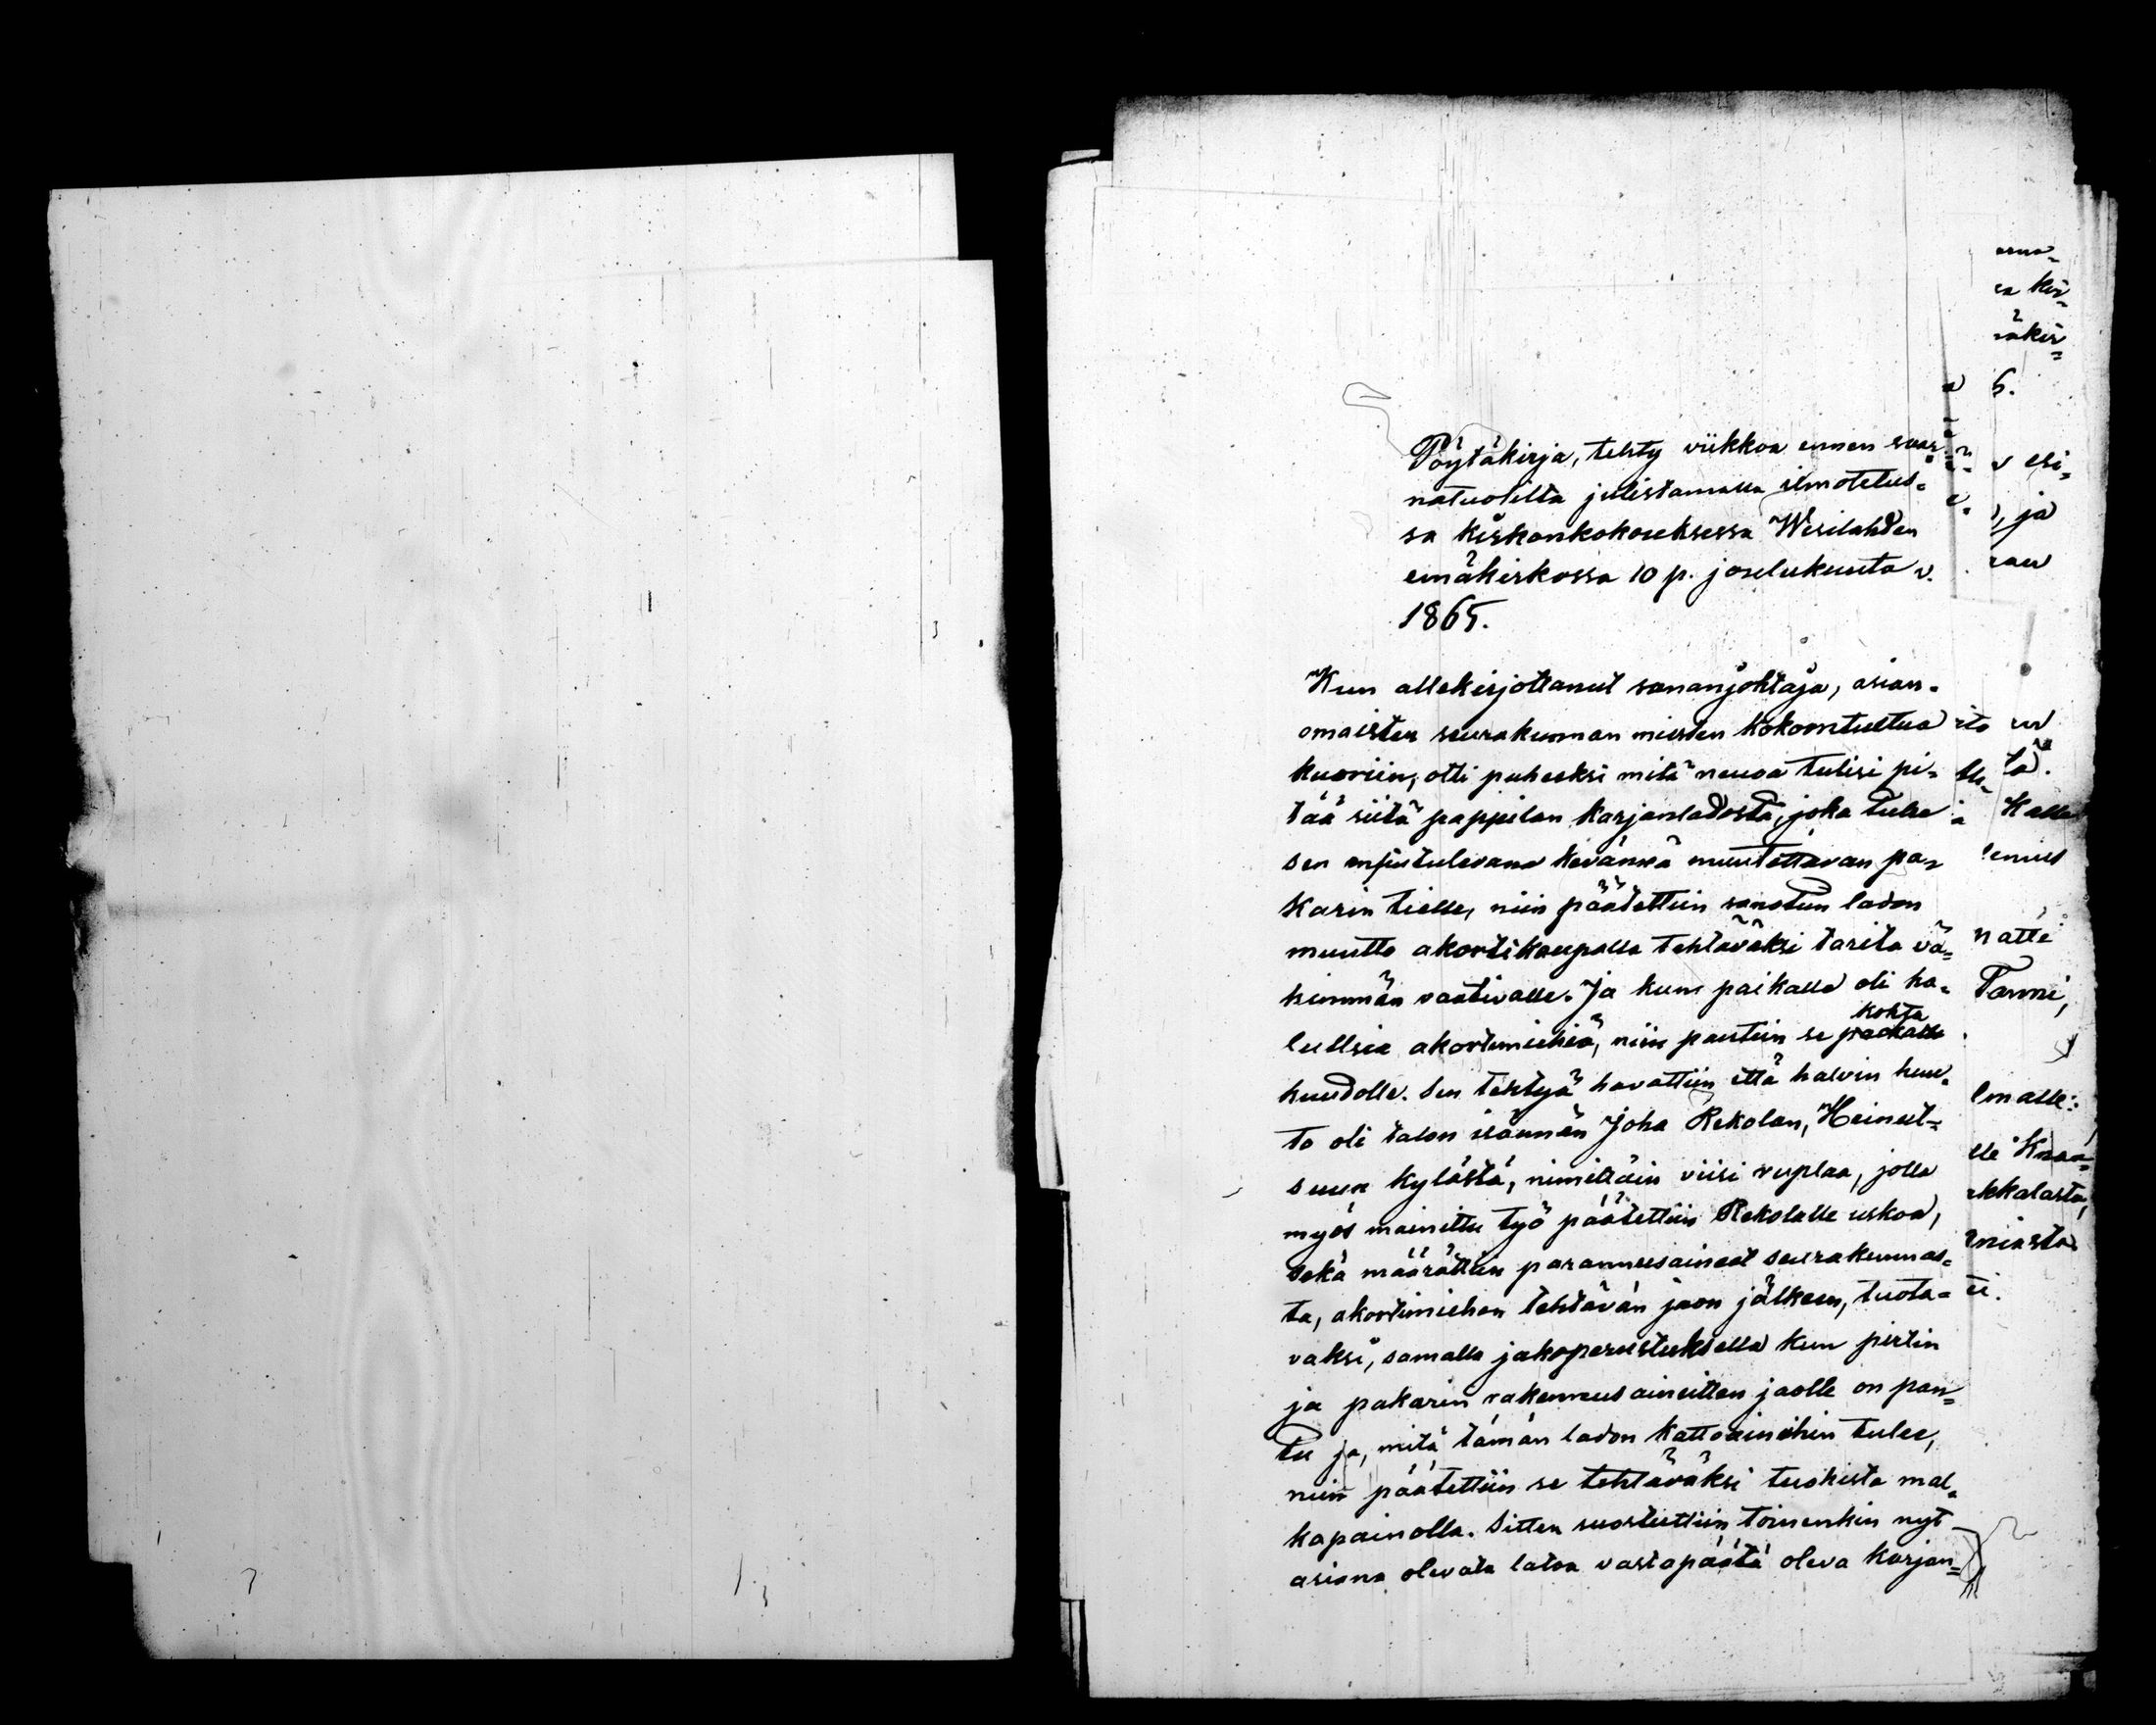 Pöytäkirja, tehty viikkoa ennen saar=
natuolilta julistamalla ilmotetus=
sa kirkonkokouksessa Wesilahden
emäkirkossa 10 p. joulukuuta v.
1865.
Kun allekirjottanut sananjohtaja, asian=
omaisten seurakunnan miesten kokoontultua
kuoriin, otti puheeksi mitä neuoa tulisi pi=
tää siitä pappilan karjanladosta, joka tulee
sen ensitulevana keväinnä muutettavan pa=
karin tielle, niin päätettiin sanotun ladon
muutto akortikaupalla tehtäväksi tarita vä=
himmän vaativalle. Ja kun paikalla oli ha=
lullisia akortimiehiä, niin pantiin se kohta
huudolle. Sen tehtyä havattiin että halvin huu=
to oli talon isännän Joha Rekolan, Heinut=
suun kylästä, nimittäin viisi ruplaa, jolla
myös mainittu työ päätettiin Rekolalle uskoa,
sekä määrättiin parannusaineet seurakunnas=
ta, akortimiehen tehtävän jaon jälkeen, tuota=
vaksi, samalla jakoperustuksella kun pirtin
ja pakarin rakennusaineitten jaolle on pan=
tu ja, mitä tämän ladon kattoaineihin tulee,
niin päätettiin se tehtäväksi tuohista mal=
kapainolla. Sitten suostuttiin toinenkin nyt
asiana olevata latoa vastapäätä oleva karjan=
esi=
, ja
Kalle
natti
Tanni,
lmalle:
lle Knaa=
kkalasta,
niasta